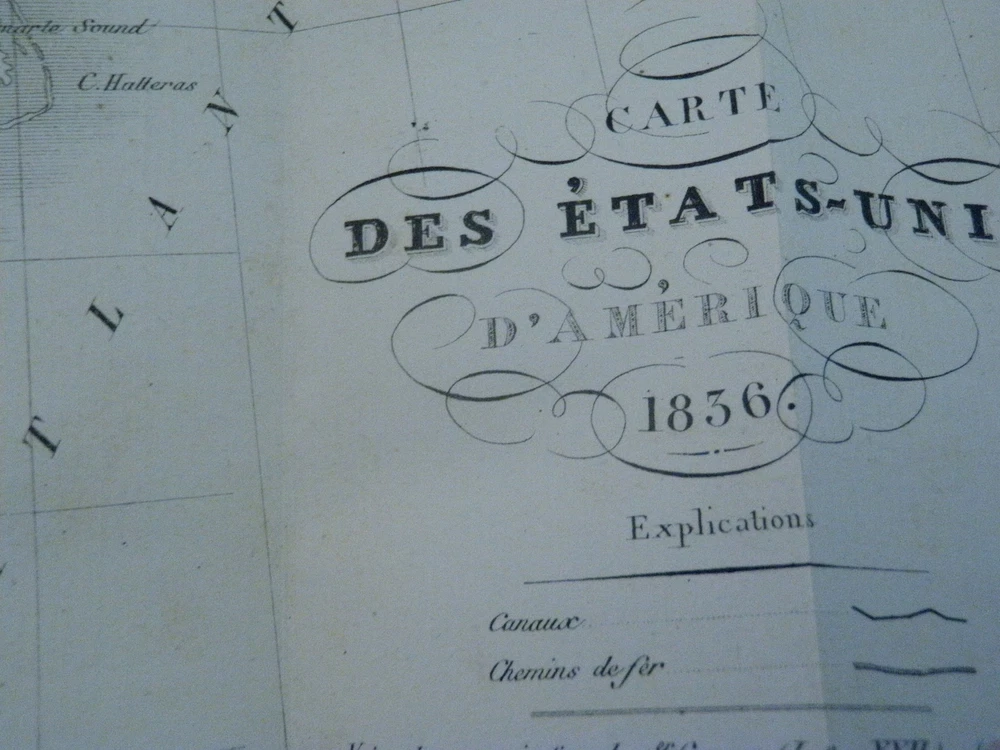 Sound
C. Hatteras
T
N
A
L
T
CARTE
DES ÉTATS-UNI
D'AMÉRIQUE
1836.
Explications
Canaux
Chemins de fer